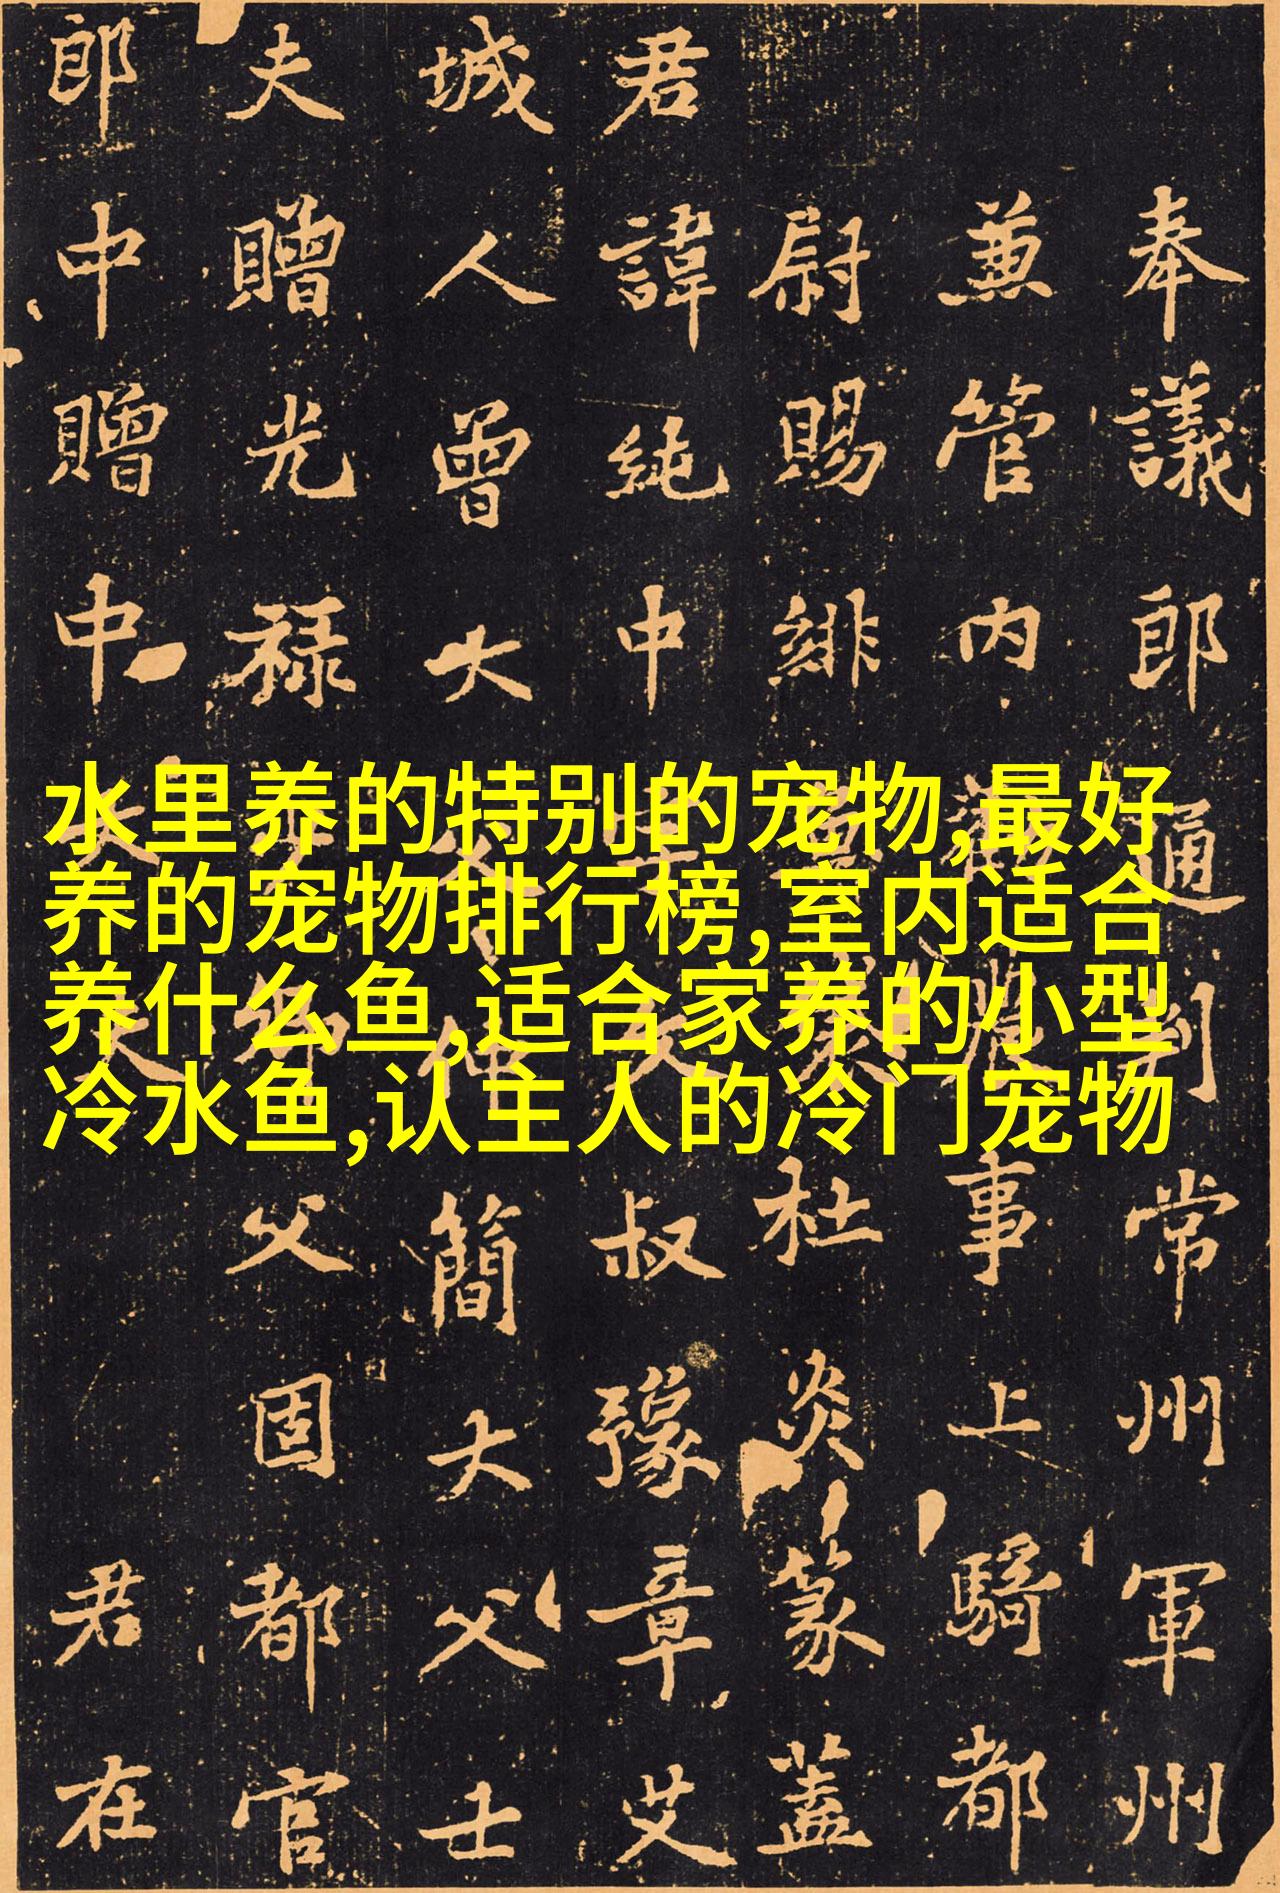 水里养的特别的宠物,最好
养的宠物排行榜,室内适合
养什么鱼,适合家养的小型
冷水鱼,认主人的冷门宠物
奉議郎通判常州軍州
兼管内事上騎都
尉賜緋杜炎篆蓋
君諱純中叔豫章艾
城人曾大父伸簡大父士
夫贈光禄父固都官
郎中贈中大夫君在